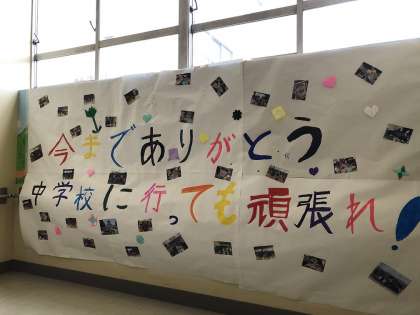 今までありがとう
中学校に行っても頑張れ!